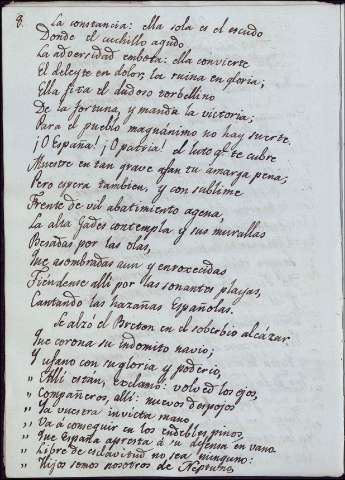 8.
La constancia: ella sola es el escudo
Donde el cuchillo agudo
La adversidad embota: ella convierte
El deleyte en dolor, la ruina en gloria;
Ella fixa el dudoso torbellino
De la fortuna, y manda la victoria;
Para el pueblo magnánimo no hay suerte.
¡O España! ¡O patria! el luto q.e te cubre
Muestre en tan grave afan tu amarga pena;
Pero espera tambien, y con sublime
Frente de vil abatimiento agena,
La alta Gades contempla y sus murallas
Besadas por las olas,
Que asombradas aun y enroxecidas
Tiéndense alli por las sonantes playas,
Cantando las hazañas Españolas.
Se alzó el Breton en el soberbio alcázar
Que corona su indomito navio;
Y ufano con su gloria y poderio,
„ Alli estan, exclamó: volved los ojos,
„ Compañeros, alli: nuevos despojos
„ Ya vuestra invicta mano
„ Va á conseguir en los endebles pinos,
„ Que España apresta á su defensa en vano.
„ Libre de esclavitud no sea ninguno:
„ Hijos somos nosotros de Neptuno,